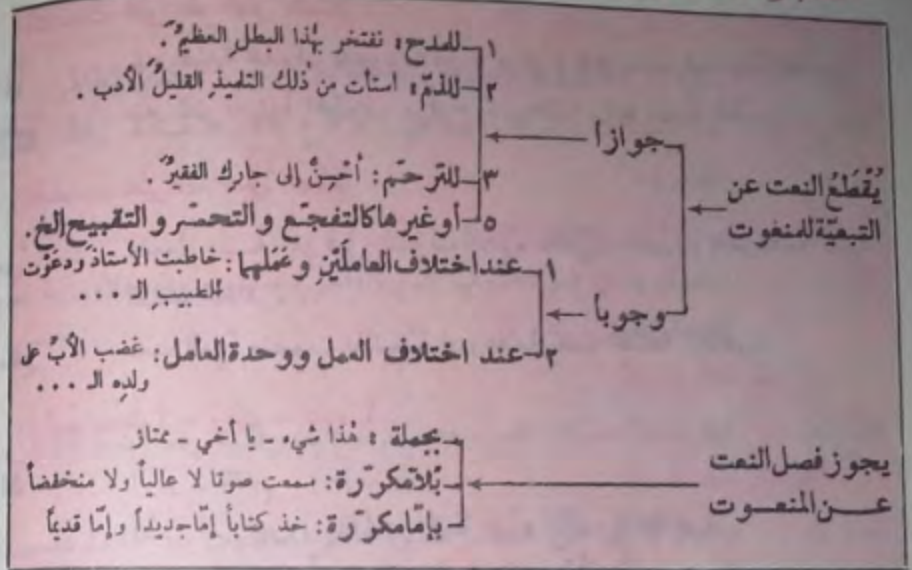 يُقْطَعُ النعت عن
التبعيّة للمنعوت
جوازاً
١ـ للمدح: نفتخر بهٰذا البطلِ العظيمُ.
٢ـ للذمّ: استأت من ذٰلك التلميذِ القليلُ الأدب.
٣ـ للترحّم: أحْسِنْ إلى جارِك الفقيرُ.
٥ـ أو غيرها كالتفجّع والتحسّر والتقبيح إلخ.
وجوباً
١ـ عند اختلاف العاملَيْنِ وعَمَلهما: خاطبت الأستاذَ ودعَوْت
للطبيبِ الـ ...
٢ـ عند اختلاف العمل ووحدة العامل: غضب الأبُ على
ولدِه الـ ...
يجوز فصل النعت
عــن المنعـــوت
بجملة: هٰذا شيء ـ يا أخي ـ ممتاز
بلا مكرّرة: سمعت صوتا لا عالياً ولا منخفضاً
بإمّا مكرّرة: خذ كتاباً إمّا جديداً وإمّا قديماً